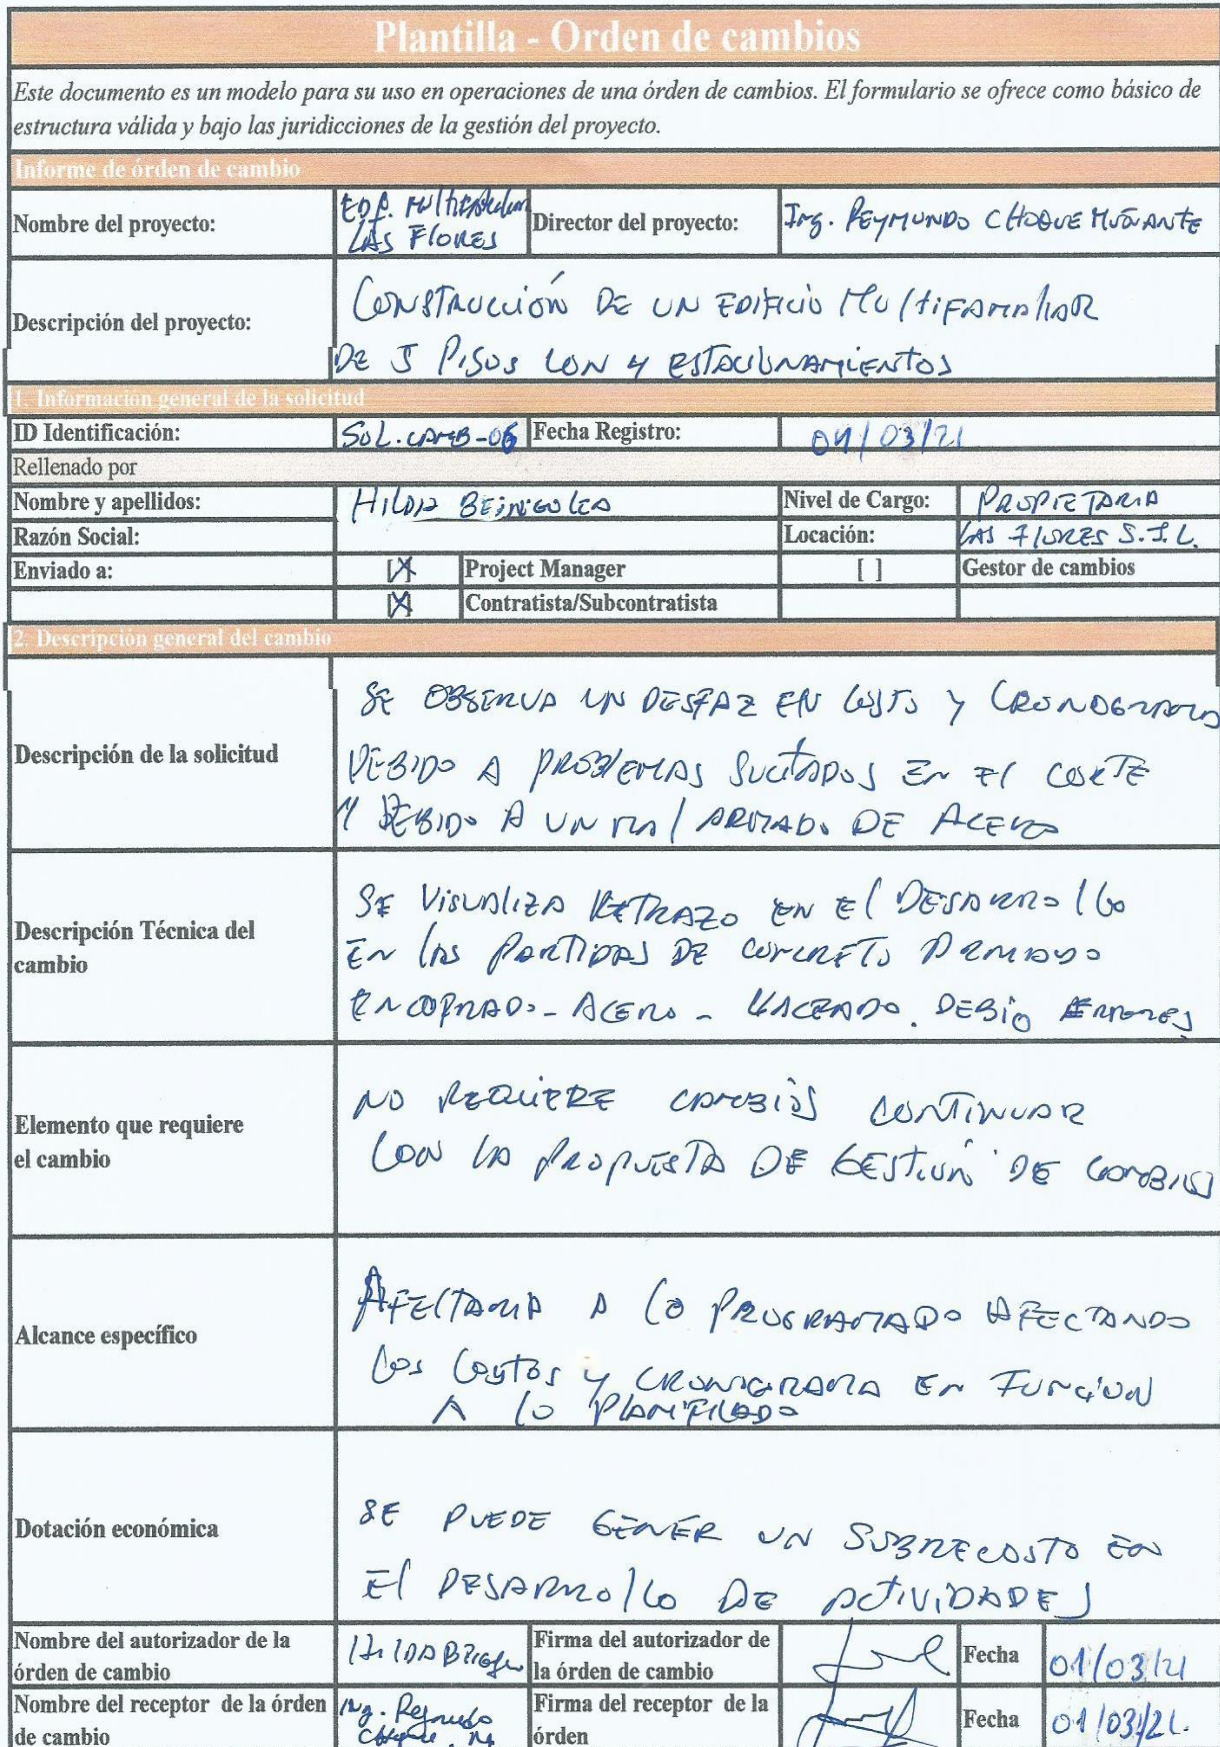 Plantilla - Orden de cambios
Este documento es un modelo para su uso en operaciones de una órden de cambios. El formulario se ofrece como básico de
estructura válida y bajo las juridicciones de la gestión del proyecto.
Informe de órden de cambio
Nombre del proyecto:
LAS FLORES
Director del proyecto:
Ing. REYMUNDO CHOQUE MUÑANTE
Descripción del proyecto:
CONSTRUCCIÓN DE UN EDIFICIO MULTIFAMILIAR
DE 5 PISOS CON 4 ESTACIONAMIENTOS
1. Información general de la solicitud
ID Identificación:
SOL.CAMB-06
Fecha Registro:
01/03/21
Rellenado por
Nombre y apellidos:
HILDA BEINGOLEA
Nivel de Cargo:
PROPIETARIA
Razón Social:
Locación:
LAS FLORES S.J.L.
Enviado a:
[X]
Project Manager
[ ]
Gestor de cambios
[X]
Contratista/Subcontratista
2. Descripción general del cambio
Descripción de la solicitud
SE OBSERVA UN DESFAZ EN COSTO Y CRONOGRAMA
DEBIDO A PROBLEMAS SUCITADOS EN EL CORTE
Y DEBIDO A UN MAL ARMADO DE ACERO
Descripción Técnica del
cambio
SE VISUALIZA RETRAZO EN EL DESARROLLO
EN LAS PARTIDAS DE CONCRETO ARMADO
ENCOFRADO - ACERO - VACEADO. DEBIO ERRORES
Elemento que requiere
el cambio
NO REQUIERE CAMBIOS CONTINUAR
CON LA PROPUESTA DE GESTION DE CAMBIOS
Alcance específico
AFECTARIA A LO PROGRAMADO AFECTANDO
LOS COSTOS Y CRONOGRAMA EN FUNCION
A LO PLANIFICADO
Dotación económica
SE PUEDE GENER UN SUBRECOSTO EN
EL DESARROLLO DE ACTIVIDADES
Nombre del autorizador de la
órden de cambio
HILDA
Firma del autorizador de
la órden de cambio
Fecha
01/03/21
Nombre del receptor de la órden
de cambio
Ing. Reymundo
Choque
Firma del receptor de la
órden
Fecha
01/03/21.